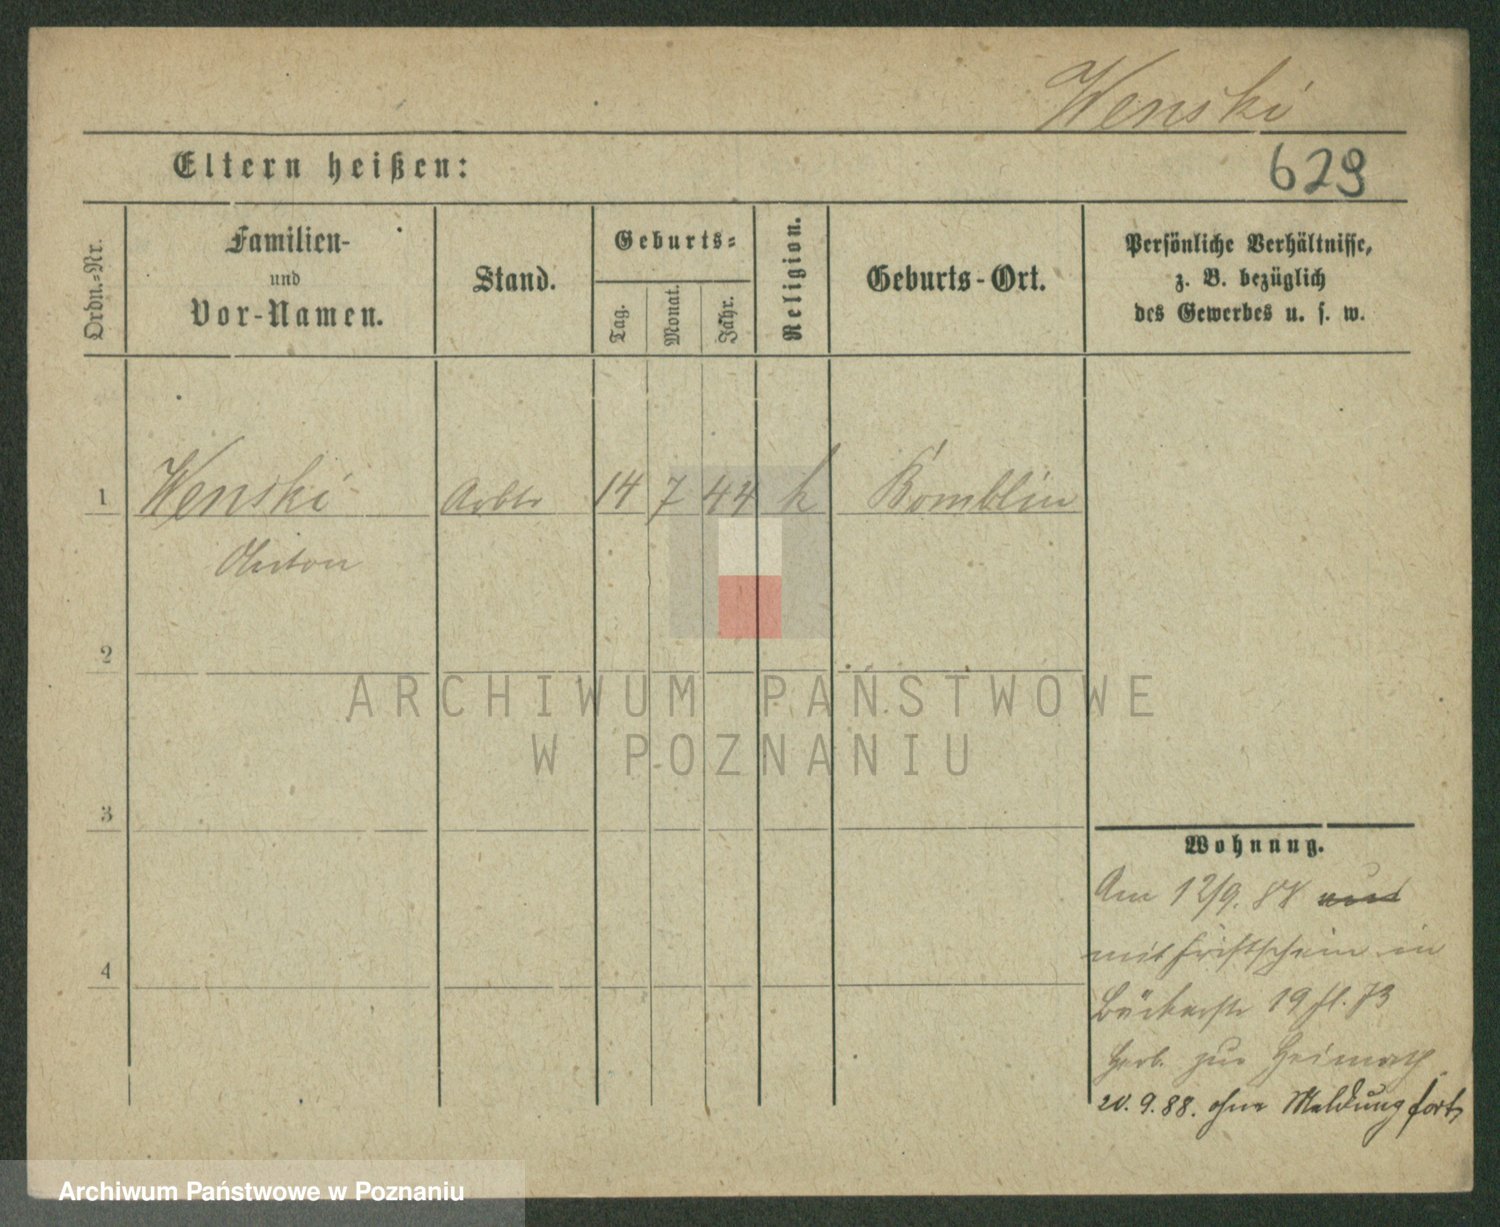 Wenski
Eltern heißen:
629
Ordn.-Nr.
Familien-
und
Vor-Namen.
Stand.
Geburts-
Tag.
Monat.
Jahr.
Religion.
Geburts-Ort.
Persönliche Verhältnisse,
z. B. bezüglich
des Gewerbes u. s. w.
1 Wenski Arbtr 14 7 44 k
Anton
2
ARCHIWUM PAŃSTWOWE
W POZNANIU
3
4
Wohnung.
Am 12/9. 88
mit in
Bäckerstr 19
Herb. zur Heimath
20. 9. 88. ohne Meldung fort
Archiwum Państwowe w Poznaniu